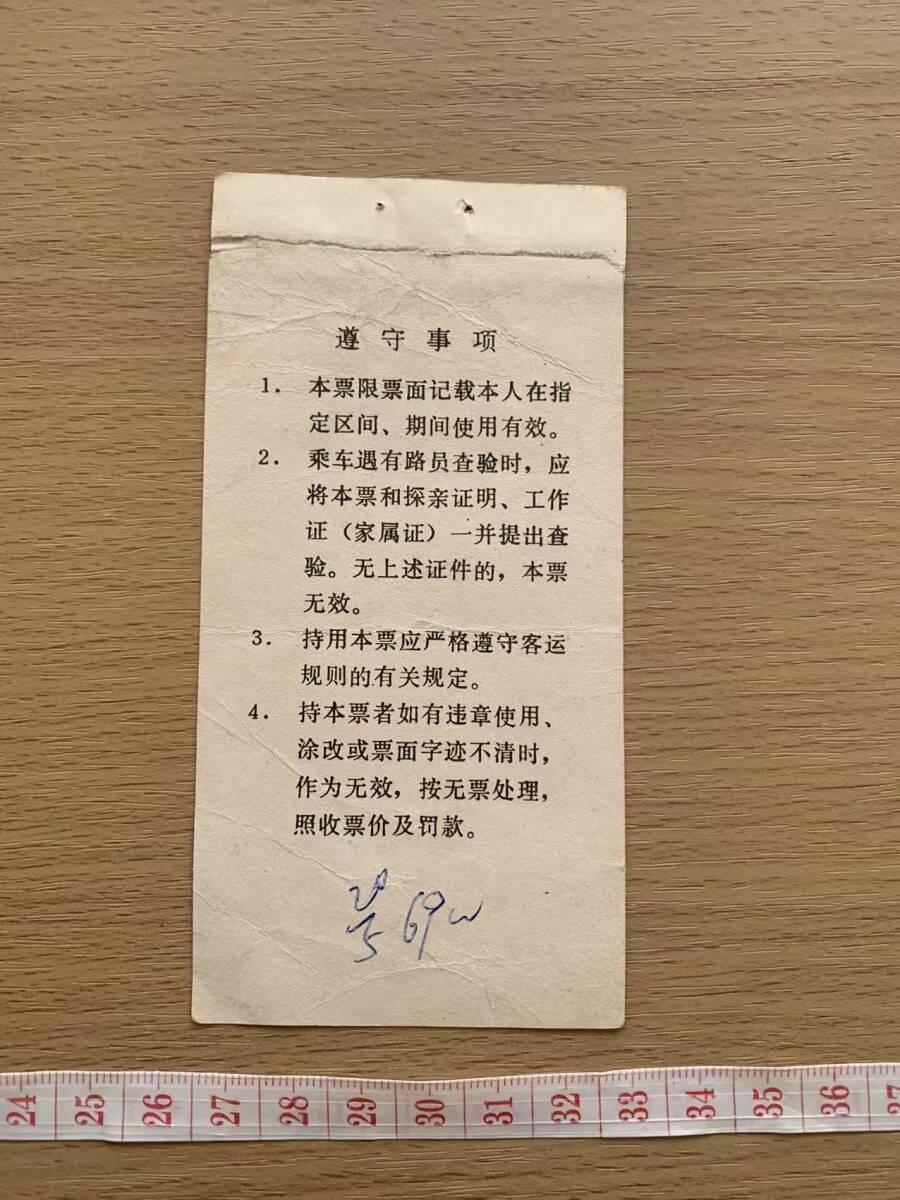 遵守事项
1. 本票限票面记载本人在指
定区间、期间使用有效。
2. 乘车遇有路员查验时，应
将本票和探亲证明、工作
证（家属证）一并提出查
验。无上述证件的，本票
无效。
3. 持用本票应严格遵守客运
规则的有关规定。
4. 持本票者如有违章使用、
涂改或票面字迹不清时，
作为无效，按无票处理，
照收票价及罚款。
24 25 26 27 28 29 30 31 32 33 34 35 36 37